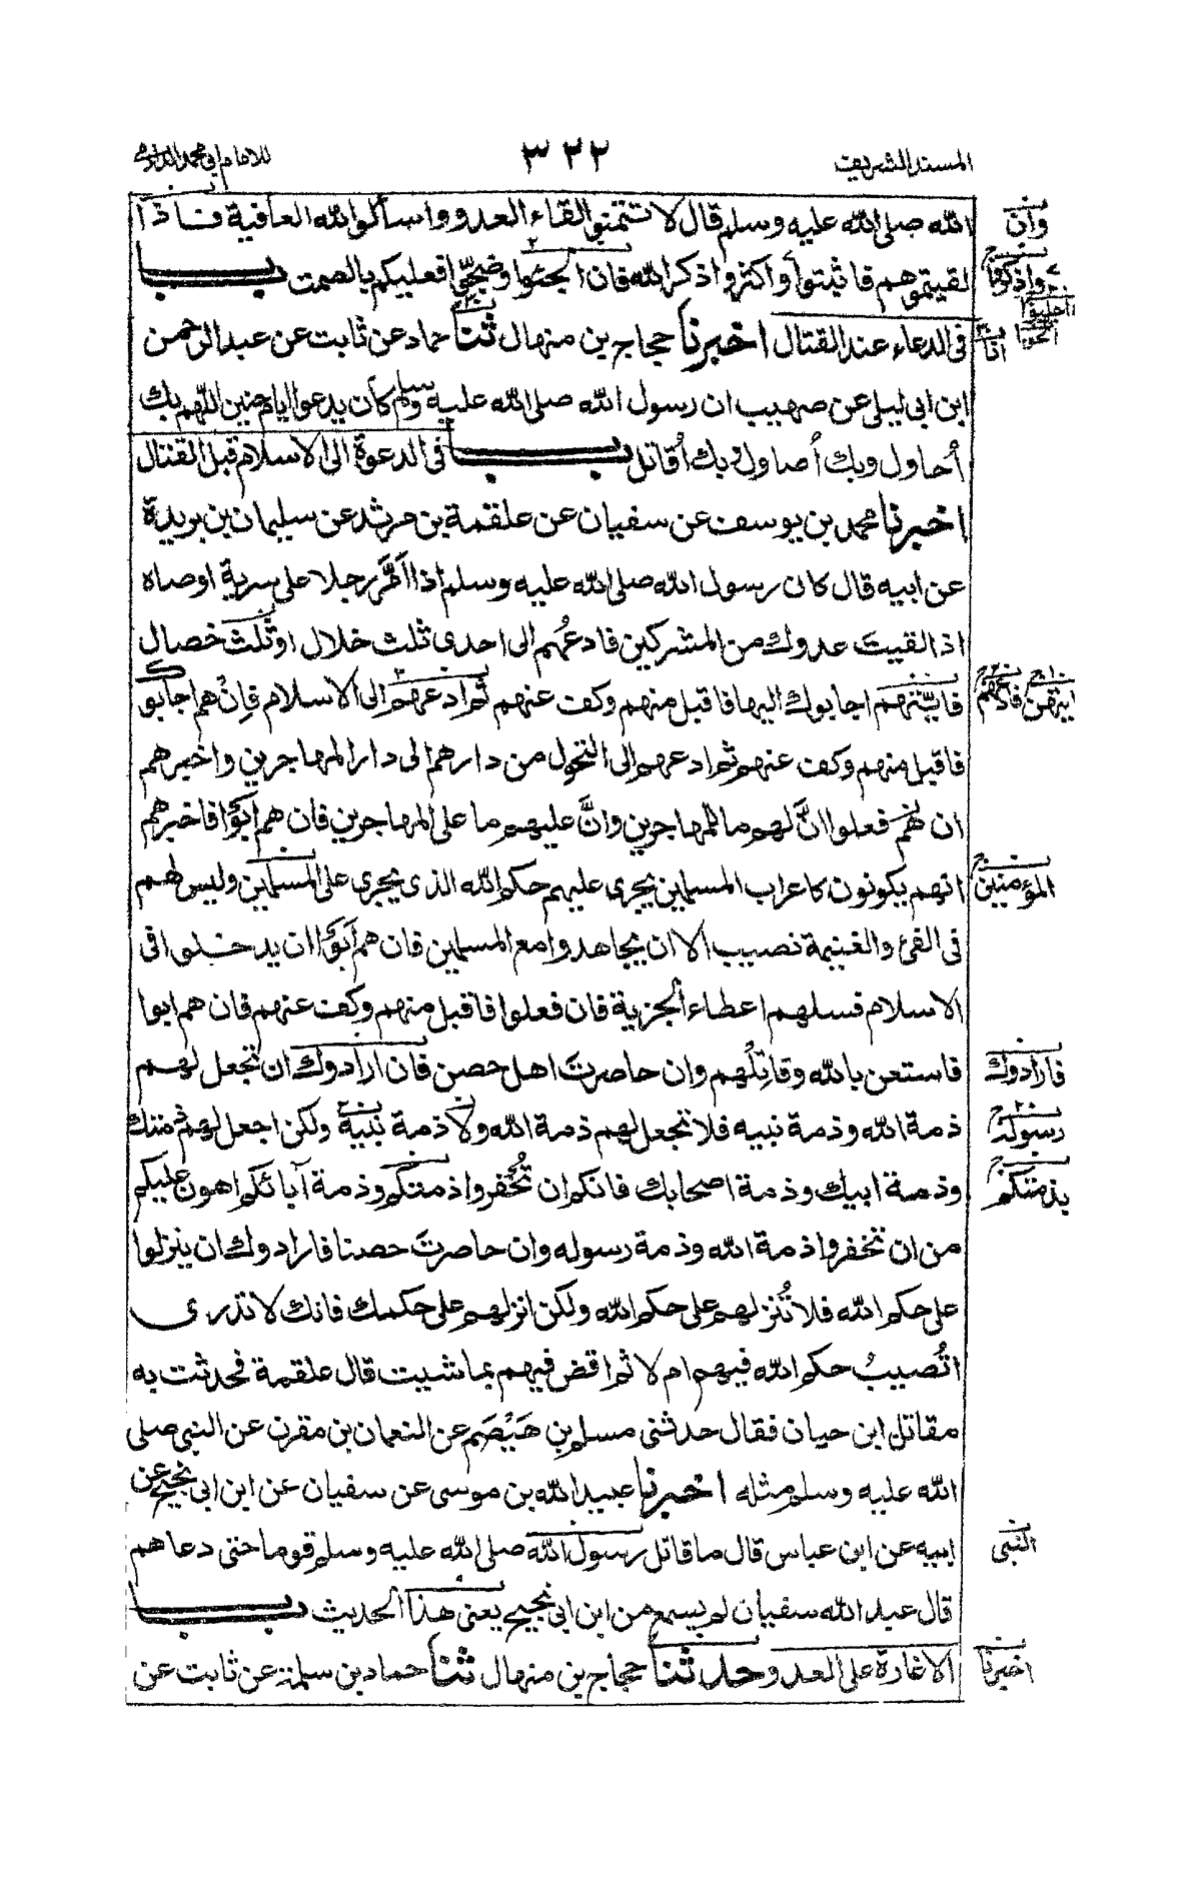 المسند الشريف
٣٢٢
للامام ابى محمد الدارمى
الله صلى الله عليه وسلم قال لا تتمنوا لقاء العدو واسألوا الله العافية فاذا
لقيتموهم فاثبتوا واكثروا ذكر الله فان اجلبوا وضجّوا فعليكم بالصمت باب
فى الدعاء عند القتال اخبرنا حجاج بن منهال ثنا حماد عن ثابت عن عبد الرحمن
ابن ابى ليلى عن صهيب ان رسول الله صلى الله عليه وسلم كان يدعو ايام حنين اللهم بك
أحاول وبك أصاول وبك أقاتل باب فى الدعوة الى الاسلام قبل القتال
اخبرنا محمد بن يوسف عن سفيان عن علقمة بن مرثد عن سليمان بن بريدة
عن ابيه قال كان رسول الله صلى الله عليه وسلم اذا اَمَّر رجلا على سرية اوصاه
اذا لقيت عدوك من المشركين فادعُهم الى احدى ثلث خلال او ثلث خصال
فايّتهم اجابوك اليها فاقبل منهم وكف عنهم ثم ادعهم الى الاسلام فاِنْ هم اجابوك
فاقبل منهم وكف عنهم ثم ادعهم الى التحول من دارهم الى دار المهاجرين واخبرهم
ان هم فعلوا انَّ لهم ما للمهاجرين وانَّ عليهم ما على المهاجرين فان هم اَبَوْا فاخبرهم
انهم يكونون كاعراب المسلمين يجرى عليهم حكم الله الذى يجرى على المسلمين وليس لهم
فى الفئ والغنيمة نصيب الا ان يجاهدوا مع المسلمين فان هم اَبَوْا ان يدخلوا فى
الاسلام فسلهم اعطاء الجزية فان فعلوا فاقبل منهم وكف عنهم فان هم ابوا
فاستعن بالله وقاتِلْهم وان حاصرتَ اهل حصن فان ارادوك ان تجعل لهم
ذمة الله وذمة نبيه فلا تجعل لهم ذمة الله ولا ذمة نبيه ولكن اجعل لهم ذمتك
وذمة ابيك وذمة اصحابك فانكم ان تُخْفِروا ذمتكم وذمة آبائكم اهون عليكم
من ان تخفروا ذمة الله وذمة رسوله وان حاصرتَ حصنا فارادوك ان ينزلوا
على حكم الله فلا تُنزلهم على حكم الله ولكن انزلهم على حكمك فانك لا تدرى
اتُصيبُ حكم الله فيهم ام لا ثم اقض فيهم بما شيت قال علقمة فحدثت به
مقاتل ابن حيان فقال حدثنى مسلم بن هَيْصَم عن النعمان بن مقرن عن النبى صلى
الله عليه وسلم مثله اخبرنا عبيد الله بن موسى عن سفيان عن ابن ابى نجيح عن
ابيه عن ابن عباس قال ما قاتل رسول الله صلى الله عليه وسلم قوما حتى دعاهم
قال عبد الله سفيان لم يسمع من ابن ابى نجيح يعنى هذا الحديث باب
الاغارة على العدو حدثنا حجاج بن منهال ثنا حماد بن سلمة عن ثابت عن
وان
واذكروا
انا
ايتهن
المؤمنين
فارادوك
رسوله
بذمتكم
النبى
اخبرنا